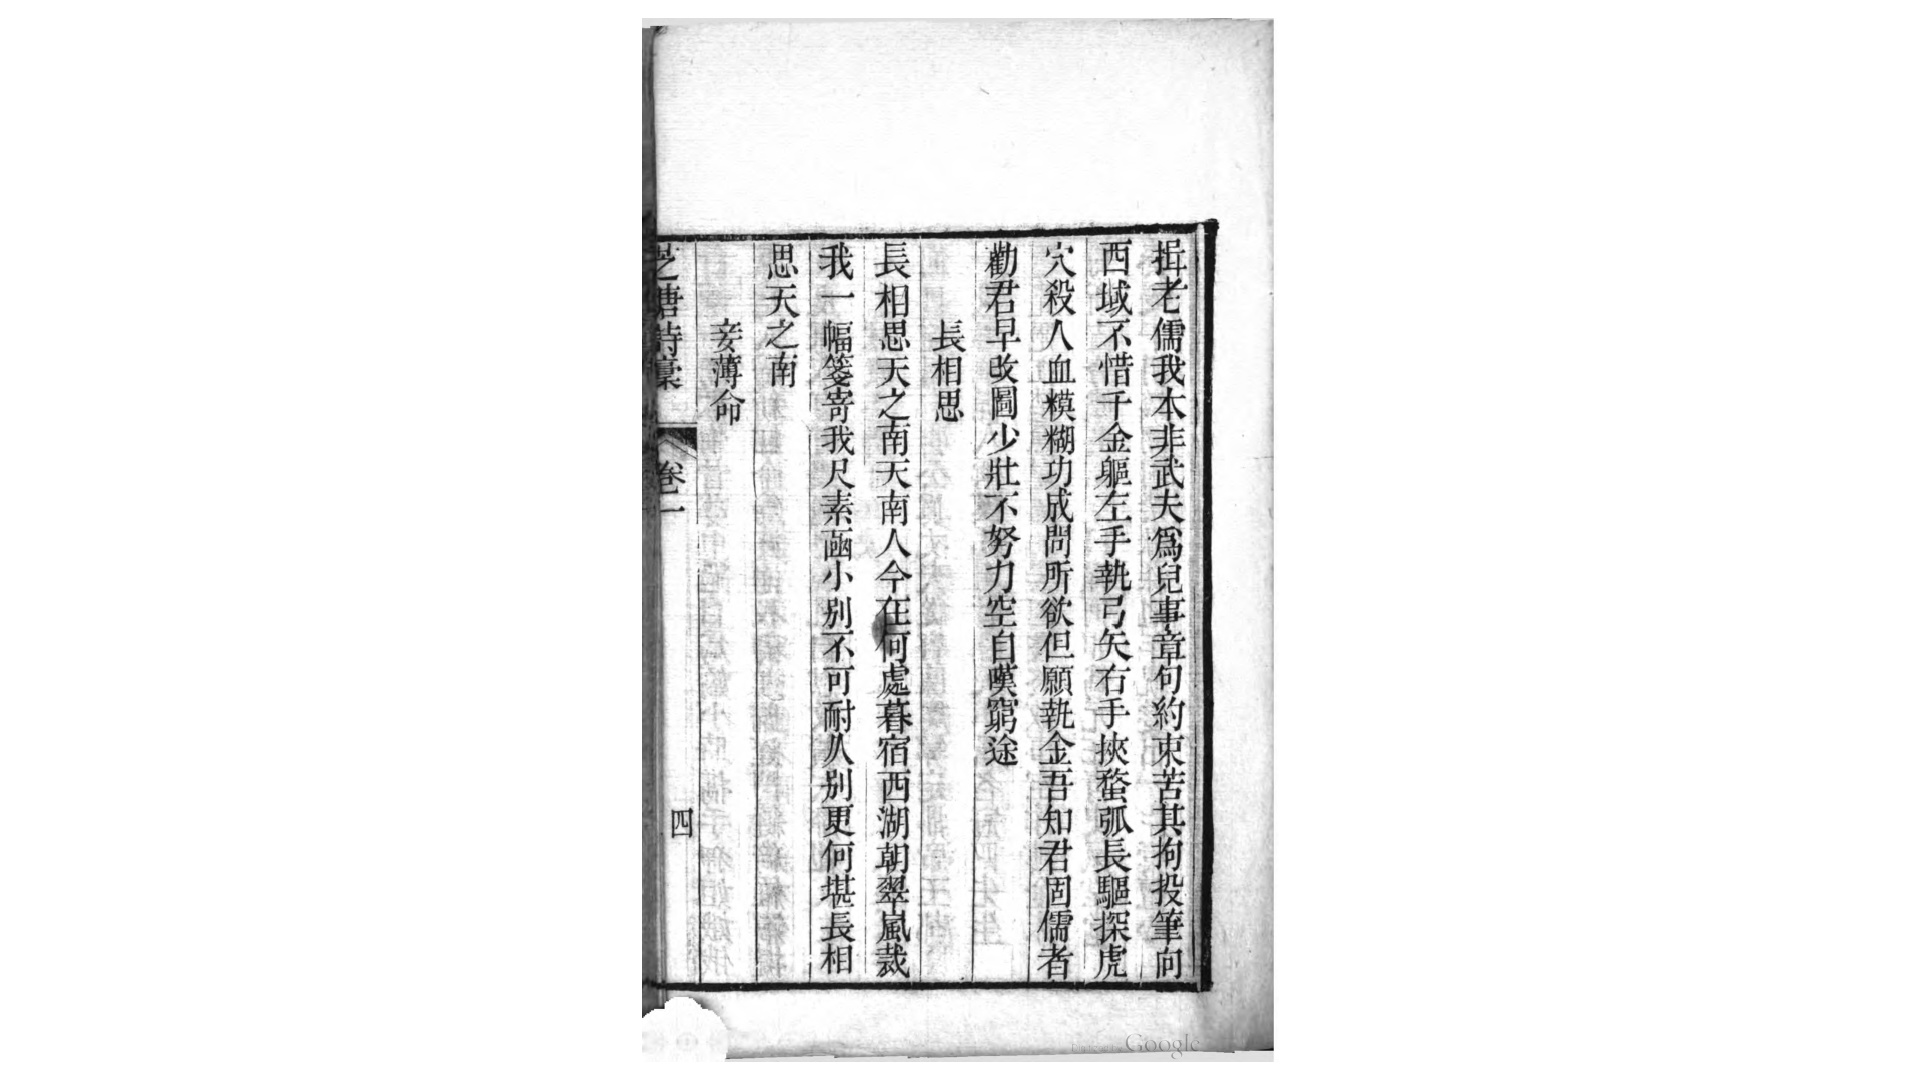 揖老儒我本非武夫爲兒事章句約束苦其拘投筆向
西域不惜千金軀左手執弓矢右手挾蝥弧長驅探虎
穴殺人血糢糊功成問所欲但願執金吾知君固儒者
勸君早改圖少壯不努力空自嘆窮途
長相思
長相思天之南天南人今在何處暮宿西湖朝翠嵐裁
我一幅箋寄我尺素函小別不可耐久別更何堪長相
思天之南
妾薄命
芝塘詩稾
卷一
四
Google